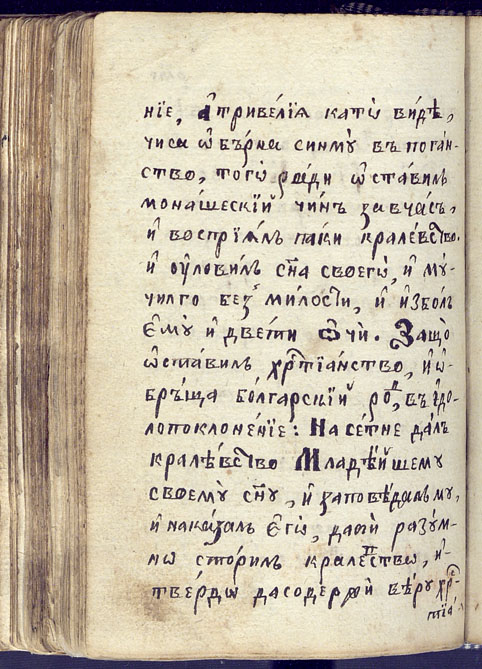 нїе, а҆ тривелїѧ катѡ ви́де,
чиса ѡ҆бѣрна синмꙋ̀ въ пога́н-
ство, тогѡ̀ ра́ди ѡ҆ста́вилъ
мона́шескїй чи́нъ завча́съ,
и҆ воспрїѧ́лъ па́ки кралевство.
и҆ ᲂу҆ловилъ сн҃а своегѡ̀, и҆ мꙋ̀-
чилго без ми́лости, и҆ и҆збо́лъ
є҆мꙋ̀ и҆ две́ти ѻ҆чи. Защо̀
ѡ҆ста́вилъ хрⷭ҇тїа́нство, и҆ ѡ҆-
брѣ́ща бо́лгарскїй ро́дъ, въ і҆до-
лопоклоне́нїе: На се́тне да́лъ
кралѣ́вство Младѣ́йшему
своемꙋ̀ сн҃ꙋ, и҆ заповѣ́далъ мꙋ,
и҆ нака́залъ є҆гѡ̀, да ѿ разꙋ́м-
нѡ сто́рилъ кралевствѡ, и҆
тве́рдѡ дасодержи́ вѣ́рꙋ хрⷭ҇-
тїа́